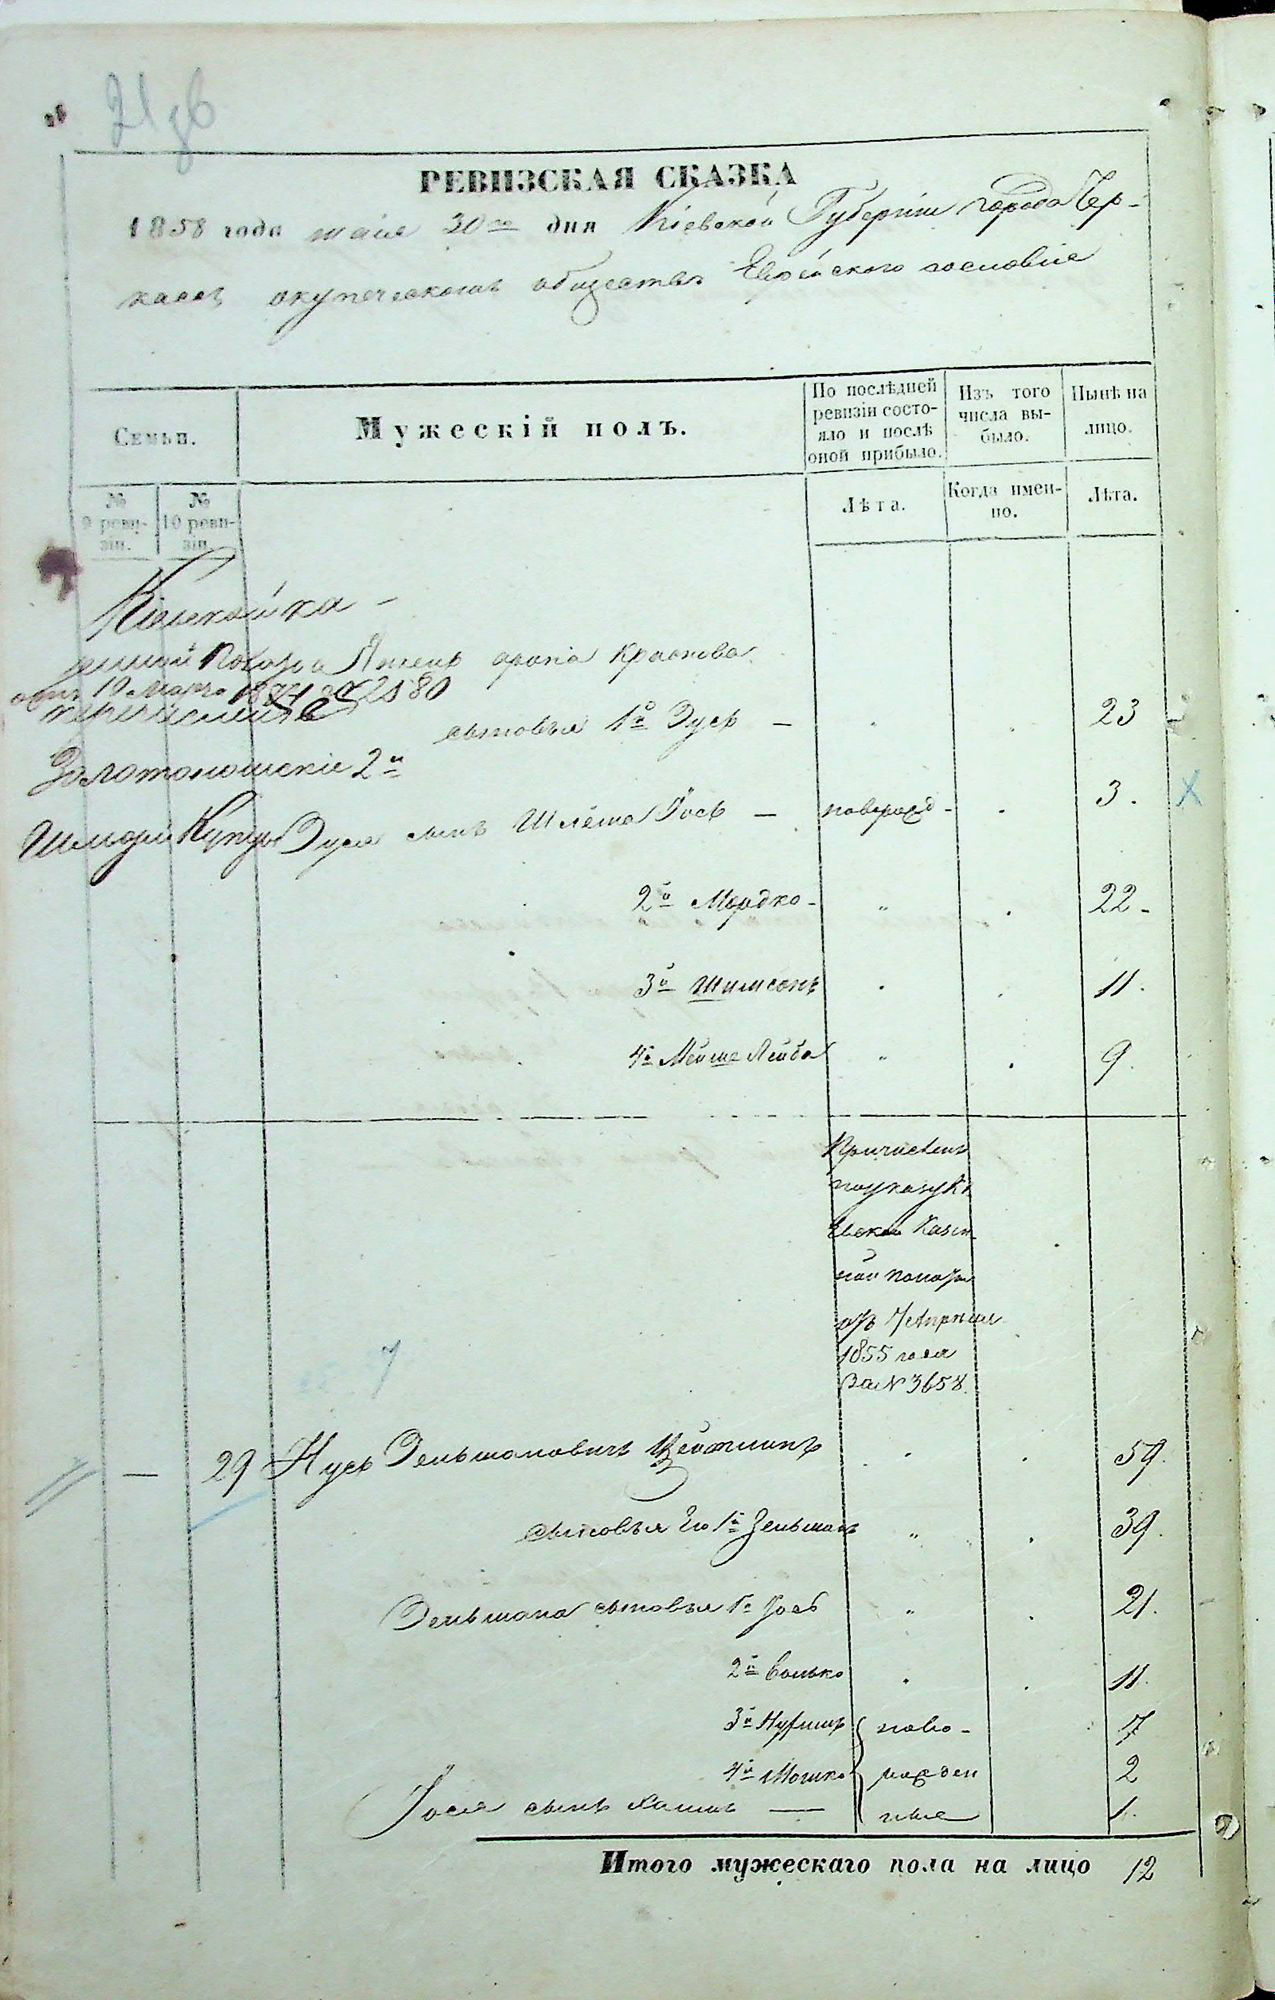 РЕВИЗСКАЯ СКАЗКА
1858 года мая 30го дня Кіевской Губерніи города Чер-
касъ окупеческомъ обществѣ Еврейского сословіе
Семьи.
Мужескій полъ.
По послѣдней ревизіи состо-
яло и послѣ оной прибыло.
Изъ того числа вы-
было.
Нынѣ на лицо.
№ 9 реви-
зіи.
№ 10 реви-
зіи.
Лѣта.
Когда имен-
но.
Лѣта.
отъ 19 Марта 2580
сыновья 1й Эусь — 23
Золотоношскіе 2й
Эуся сынъ Шлёма Іось — новорожд- 3.
2й Мордко- " 22-
3й Шимсонъ 11.
4й Мойше Лейба " 9.
Причислен
по указу Кі
евской Казен
ной палаты
отъ 7 Апреля
1855 года
За № 3658.
— 29 Нусь Зельмановичъ Цейтлинъ 59.
сыновья Его 1й Зельманъ " 39.
Зельмана сыновья 1й Іось " 21.
2й Волько 11.
3й Нухимъ ново- 7
4й Мошко рожден 2
Іося сынъ Хаимъ — ные 1.
Итого мужескаго пола на лицо 12